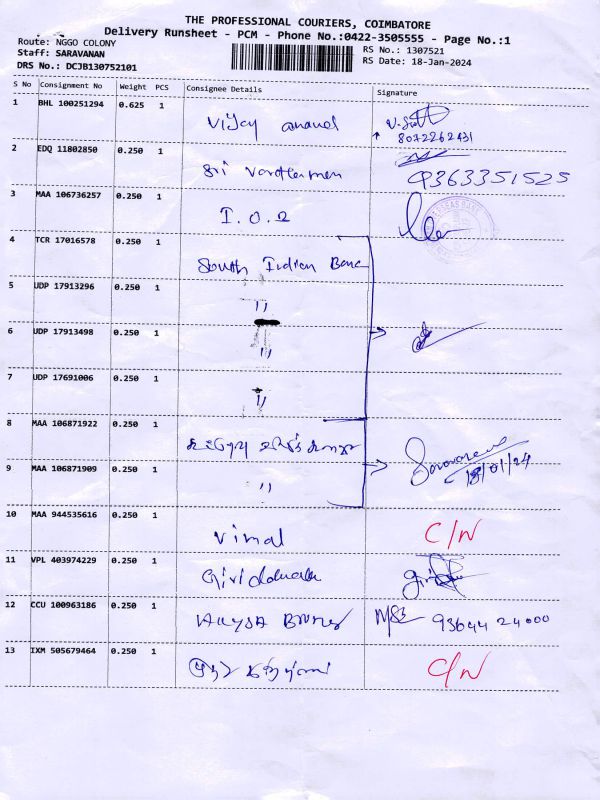 THE PROFESSIONAL COURIERS, COIMBATORE
Delivery Runsheet - PCM - Phone No.:0422-3505555 - Page No.:1
Route: NGGO COLONY
RS No.: 1307521
Staff: SARAVANAN
RS Date: 18-Jan-2024
DRS No.: DCJB130752101
S No Consignment No Weight PCS Consignee Details Signature
1 BHL 100251294 0.625 1
Vijay anand
8072262431
2 EDQ 11802850 0.250 1
Sri
9363351525
3 MAA 106736257 0.250 1
I.O.B
4 TCR 17016578 0.250 1
South Indian Bank
5 UDP 17913296 0.250 1
"
6 UDP 17913498 0.250 1
"
7 UDP 17691006 0.250 1
"
8 MAA 106871922 0.250 1
9 MAA 106871909 0.250 1
"
18/01/24
10 MAA 944535616 0.250 1
Vimal C/N
11 VPL 403974229 0.250 1
12 CCU 100963186 0.250 1
93644 24000
13 IXM 505679464 0.250 1
C/N